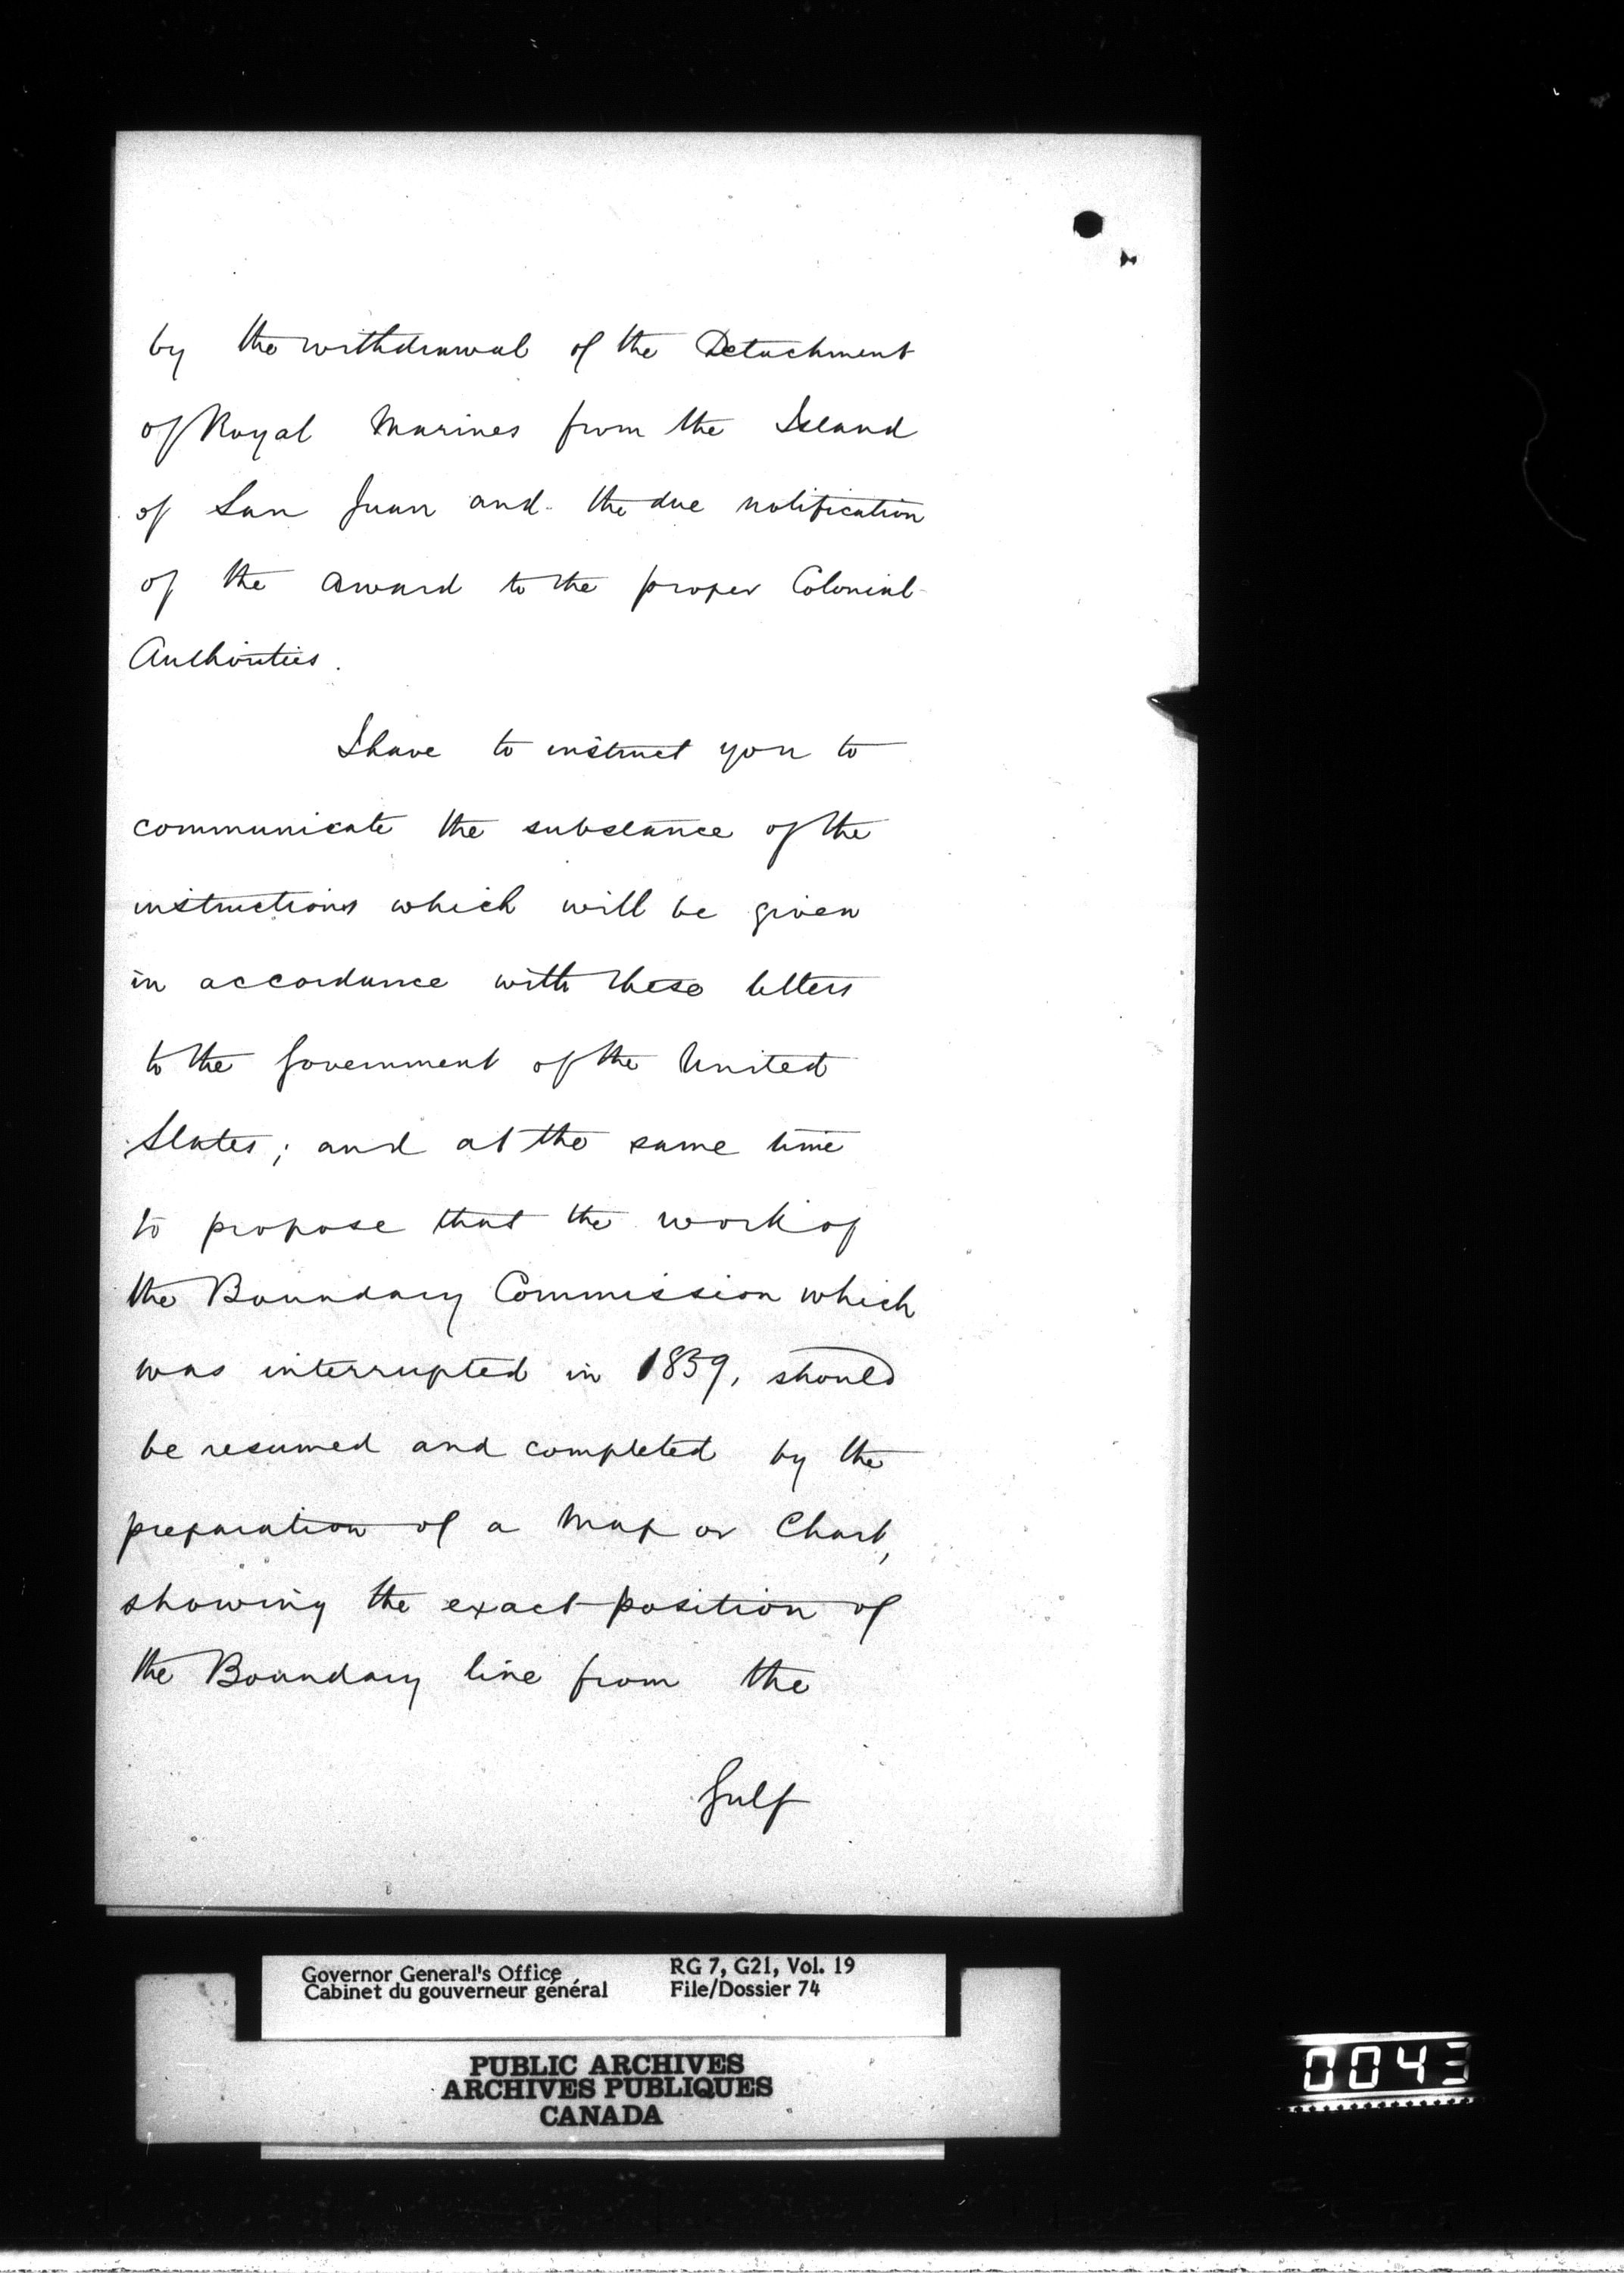 by the withdrawal of the Detachment
of Royal Marines from the Island
of San Juan and the due notification
of the award to the proper Colonial
Authorities.
I have to instruct you to
communicate the substance of the
instructions which will be given
in accordance with these letters
to the Government of the United
States; and at the same time
to propose that the work of
the Boundary Commission which
was interrupted in 1859, should
be resumed and completed by the
preparation of a Map or Chart,
showing the exact position of
the Boundary line from the
Gulf
Governor General's Office
Cabinet du gouverneur général
RG 7, G21, Vol. 19
File/Dossier 74
PUBLIC ARCHIVES
ARCHIVES PUBLIQUES
CANADA
0043